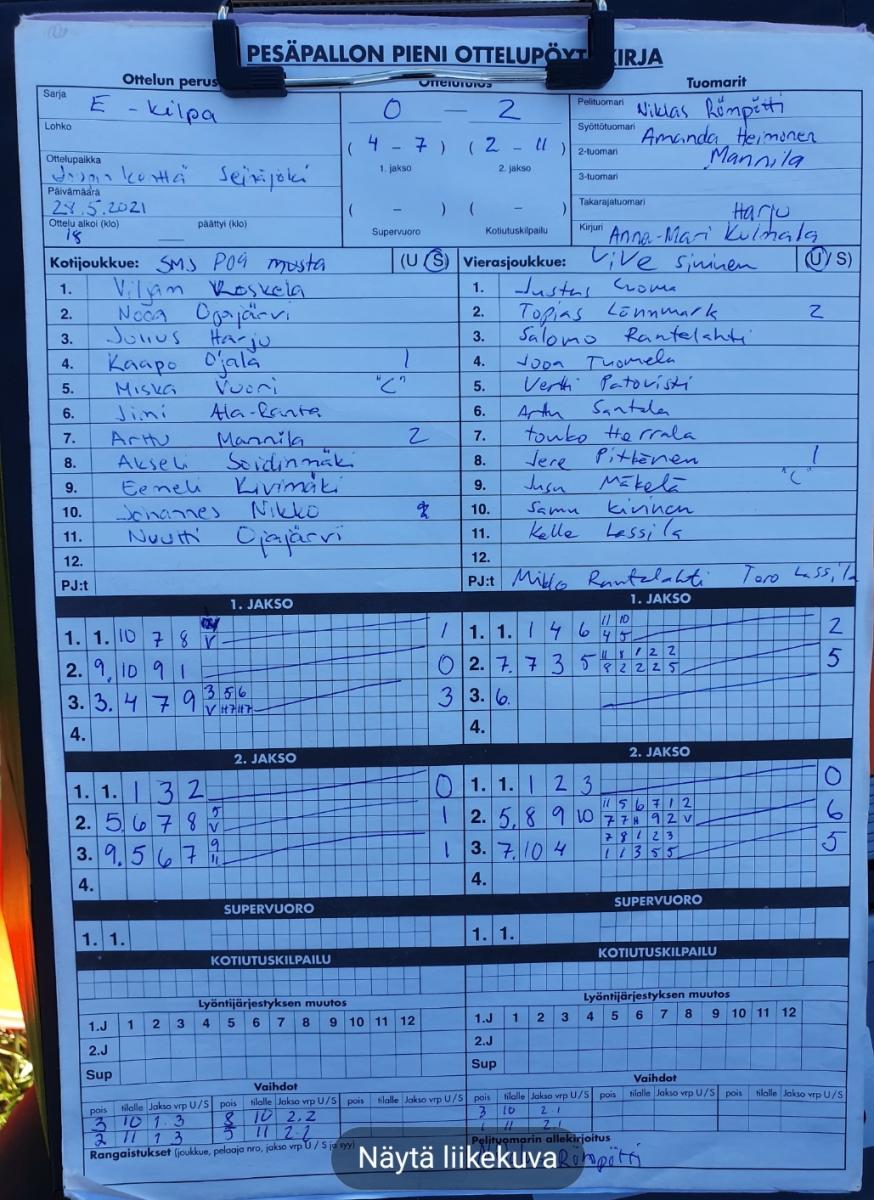 PESÄPALLON PIENI OTTELUPÖYT KIRJA
Ottelun perus
Ottelutulos
Tuomarit
Sarja E - kilpa
Lohko
Ottelupaikka Seinäjoki
Päivämäärä
28.5.2021
Ottelu alkoi (klo) 18 päättyi (klo)
0 - 2
( 4 - 7 ) ( 2 - 11 )
1. jakso 2. jakso
( - ) ( - )
Supervuoro Kotiutuskilpailu
Pelituomari Niklas Römpötti
Syöttötuomari Amanda Heimonen
2-tuomari Mannila
3-tuomari
Takarajatuomari Harju
Kirjuri Anna-Mari Kulmala
Kotijoukkue: SMS P09 musta (U/S)
1. Viljan Koskela
2. Nooa Ojajärvi
3. Julius Harju
4. Kaapo Ojala 1
5. Miska Vuori "C"
6. Jimi Ala-Ranta
7. Arttu Mannila 2
8. Akseli Soidinmäki
9. Eemeli Kivimäki
10. Johannes Nikko
11. Nuutti Ojajärvi
12.
PJ:t
Vierasjoukkue: ViVe Sininen (U/S)
1. Justus
2. Topias Lönnmark 2
3. Salomo Rantalahti
4. Joona Tuomela
5. Vertti Patovisti
6. Arttu Santala
7. Touko Herrala
8. Jere Pittönen 1
9. Jusu Mäkelä "C"
10. Samu Kivinen
11. Kalle Lassila
12.
PJ:t Mikko Rantalahti Tero Lassila
1. JAKSO
1. 1. 10 7 8 V 1
2. 9. 10 9 1 0
3. 3. 4 7 9 3 5 6 V H7 H7 3
4.
1. JAKSO
1. 1. 1 4 6 11 10 4 5 2
2. 7. 7 3 5 11 8 1 2 2 8 2 2 2 5 5
3. 6.
4.
2. JAKSO
1. 1. 1 3 2 0
2. 5. 6 7 8 5 V 1
3. 9. 5 6 7 9 11 1
4.
2. JAKSO
1. 1. 1 2 3 0
2. 5. 8 9 10 11 5 6 7 1 2 7 7 H 9 2 V 6
3. 7. 10 4 7 8 1 2 3 1 1 3 5 5 5
4.
SUPERVUORO
1. 1.
SUPERVUORO
1. 1.
KOTIUTUSKILPAILU
KOTIUTUSKILPAILU
Lyöntijärjestyksen muutos
1.J 1 2 3 4 5 6 7 8 9 10 11 12
2.J
Sup
Lyöntijärjestyksen muutos
1.J 1 2 3 4 5 6 7 8 9 10 11 12
2.J
Sup
Vaihdot
pois tilalle Jakso vrp U/S pois tilalle Jakso vrp U/S pois tilalle Jakso vrp U/S
3 10 1.3 8 10 2.2
2 11 1.3 5 11 2.2
Vaihdot
pois tilalle Jakso vrp U/S pois tilalle Jakso vrp U/S pois tilalle Jakso vrp U/S
3 10 2.1
1 11 2.1
Rangaistukset (joukkue, pelaaja nro, jakso vrp U / S ja syy)
Pelituomarin allekirjoitus
Römpötti
Näytä liikekuva